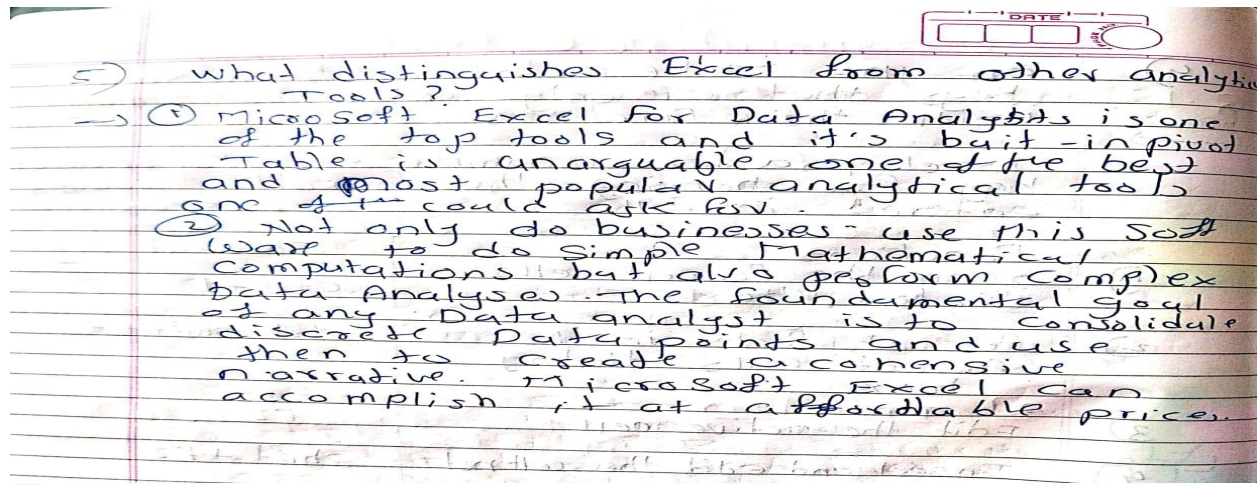 DATE
5) What distinguishes Excel from other analytic
Tools?
→ ① Microsoft Excel for Data Analysts is one
of the top tools and it's buit-in pivot
Table is anarguable one of the best
and most popular analytical tools
one could ask for.
② Not only do businesses use this Soft
ware to do Simple Mathematical
Computations but also perform Complex
Data Analyses. The foundamental goal
of any Data analyst is to Consolidate
discrete Data points and use
then to create a cohensive
narrative. Microsoft Excel can
accomplish it at affordable prices.